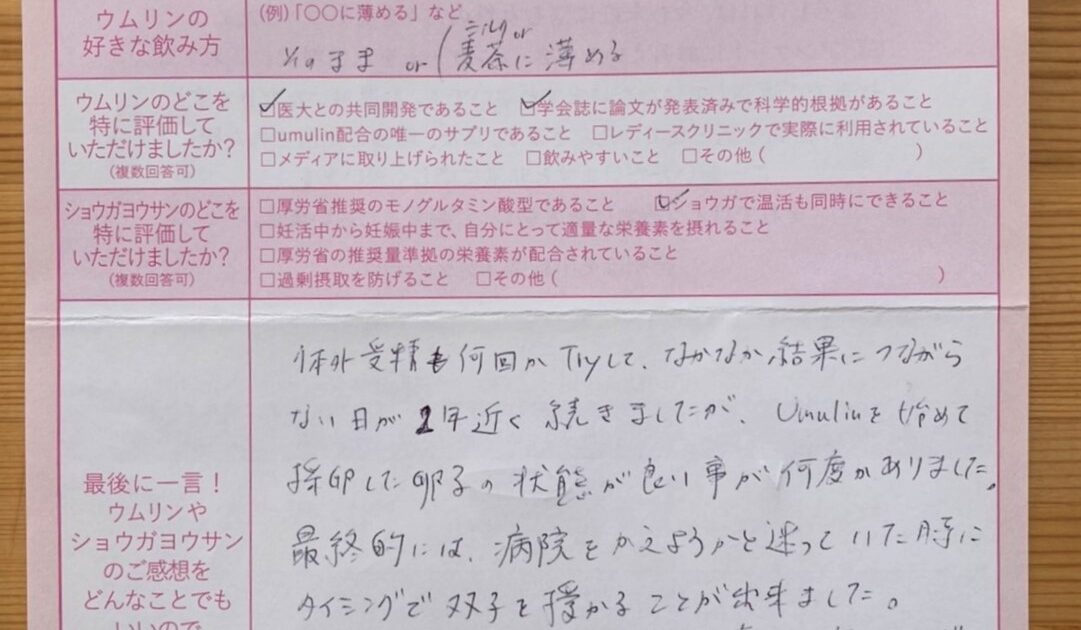 ウムリンの
好きな飲み方
(例)「〇〇に薄める」など
そのまま or (麦茶に薄める
ミルク or
ウムリンのどこを
特に評価して
いただけましたか?
(複数回答可)
☑医大との共同開発であること ☑学会誌に論文が発表済みで科学的根拠があること
□umulin配合の唯一のサプリであること □レディースクリニックで実際に利用されていること
□メディアに取り上げられたこと □飲みやすいこと □その他( )
ショウガヨウサンのどこを
特に評価して
いただけましたか?
(複数回答可)
□厚労省推奨のモノグルタミン酸型であること ☑ショウガで温活も同時にできること
□妊活中から妊娠中まで、自分にとって適量な栄養素を摂れること
□厚労省の推奨量準拠の栄養素が配合されていること
□過剰摂取を防げること □その他( )
最後に一言!
ウムリンや
ショウガヨウサン
のご感想を
どんなことでも
いいので
体外受精も何回かTryして、なかなか結果につながら
ない日が2年近く続きましたが、Umulinを始めて
採卵した卵子の状態が良い事が何度かありました。
最終的には、病院をかえようかと迷っていた時に
タイミングで双子を授かることが出来ました。